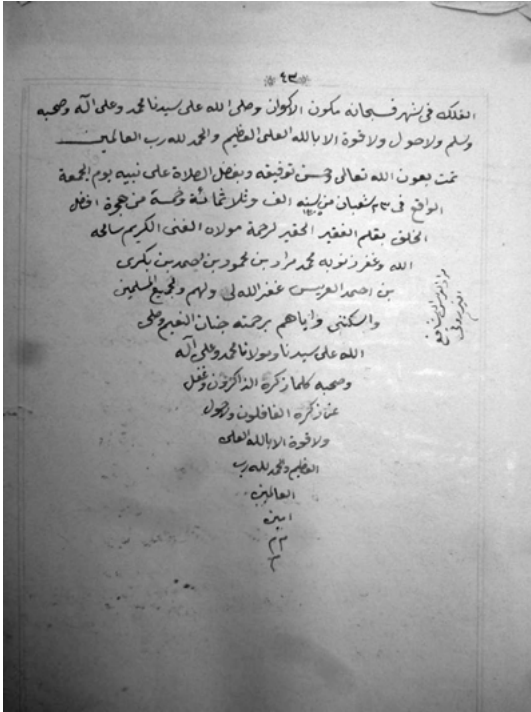 ٤٣
الفلك فى شهر فسبحانه مكون الاكوان وصلى الله على سيدنا محمد وعلى اله وصحبه
وسلم ولاحول ولا قوة الا بالله العلى العظيم والحمد لله رب العالمين
تمت بعون الله تعالى وحسن توفيقه وبفضل الصلاة على نبيه يوم الجمعة
الواقع فى ٢٣ شعبان من سنه الف وثلاثمائة وخمسة من هجرة افضل
الخلق بقلم الفقير الحقير لرحمة مولاه الغنى الكريم سامحه
الله وغفر ذنوبه محمد مراد بن محمود بن بكرى
بن احمد غفر الله لى ولهم ولجميع المسلمين
واسكننى واياهم برحمته جنان النعيم وصلى
الله على سيدنا ومولانا محمد وعلى اله
وصحبه كلما ذكره الذاكرون وغفل
عن ذكره الغافلون ولاحول
ولا قوة الا بالله العلى
العظيم والحمد لله رب
العالمين
امين